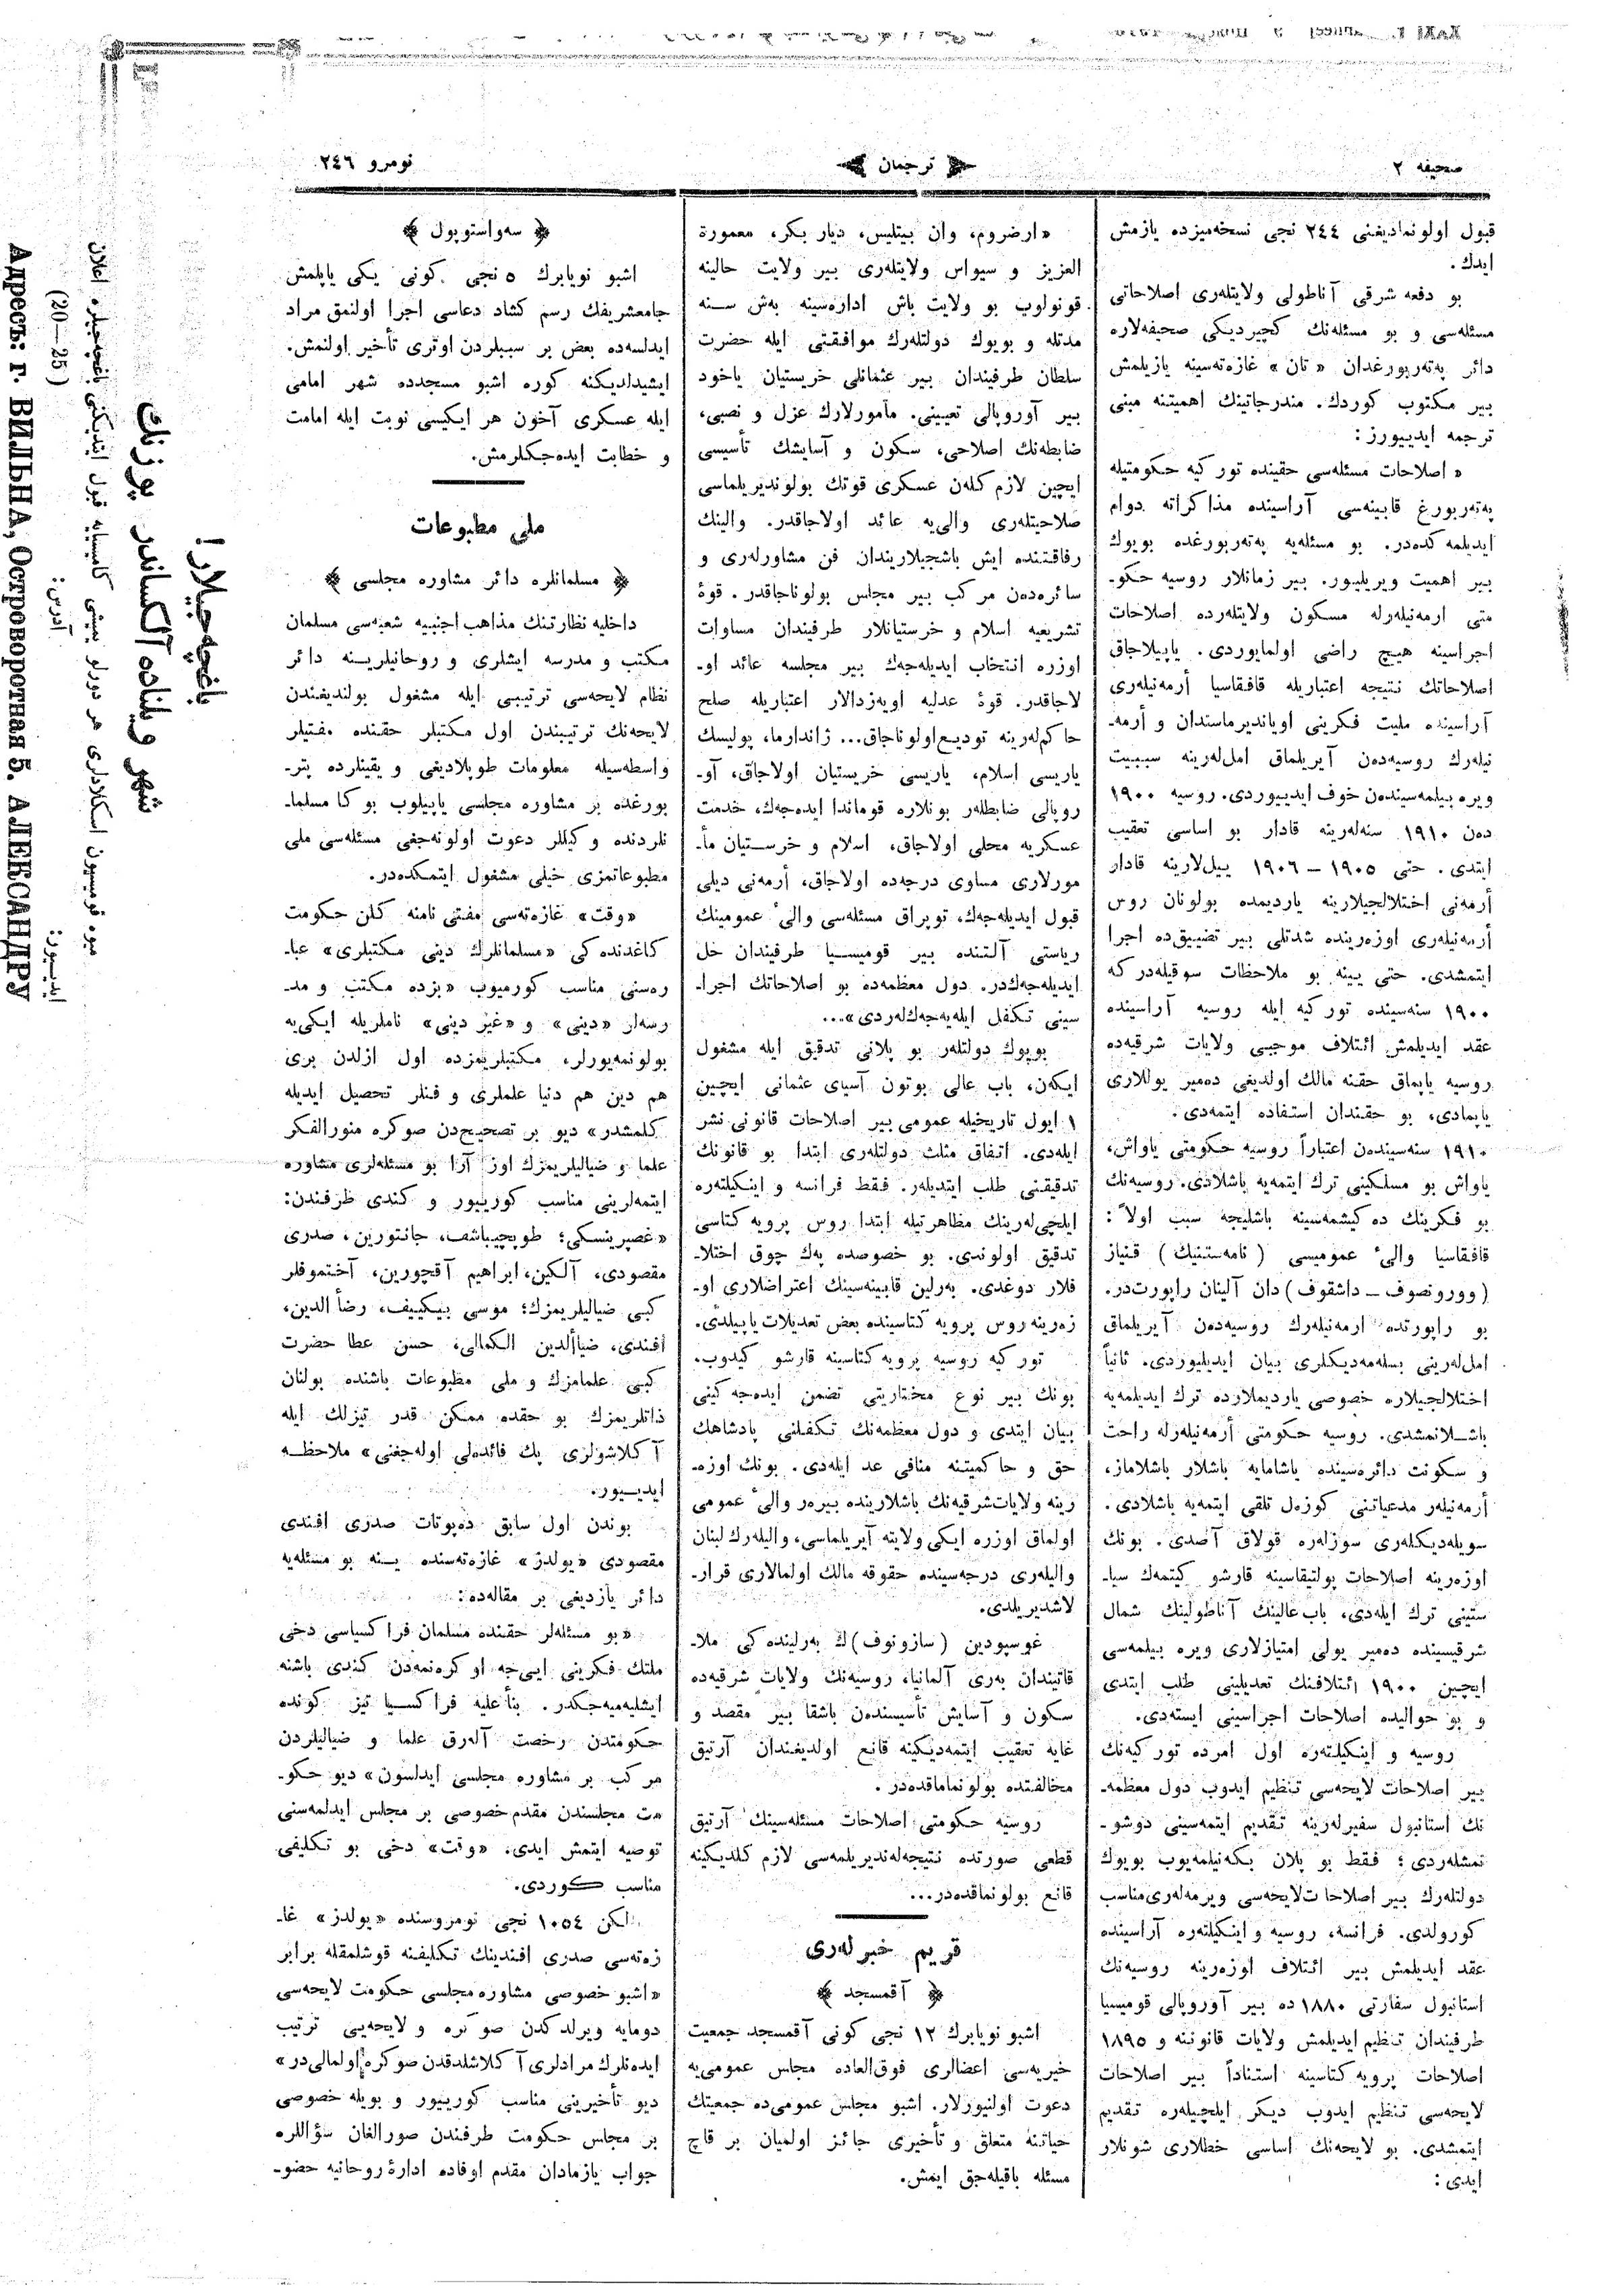 صحيفه ٢
ترجمان
نومرو ٢٤٦
قبول اولونماديغنى ٢٤٤ نجى نسخه‌ميزده يازمش
ايدك.
بو دفعه شرقى آناطولى ولايتله‌رى اصلاحاتى
مسئله‌سى و بو مسئله‌نك كچيرديكى صحيفه‌لاره
دائر په‌ته‌ربورغدان «تان» غازه‌ته‌سينه يازيلمش
بير مكتوب كوردك. مندرجاتينك اهميتنه مبنى
ترجمه ايدييورز:
«اصلاحات مسئله‌سى حقينده توركيه حكومتيله
په‌ته‌ربورغ قابينه‌سى آراسينده مذاكراته دوام
ايديلمه‌كده‌در. بو مسئله‌يه په‌ته‌ربورغده بويوك
بير اهميت ويريليور. بير زمانلار روسيه حكو-
متى ارمه‌نيله‌رله مسكون ولايتله‌رده اصلاحات
اجراسينه هيچ راضى اولمايوردى. ياپيلاجاق
اصلاحاتك نتيجه اعتباريله قافقاسيا أرمه‌نيله‌رى
آراسينده مليت فكرينى اوياندير‌ماسندان و أرمه-
نيله‌رك روسيه‌دن آيريلماق امل‌له‌رينه سببيت
ويره بيلمه‌سيندن خوف ايدييوردى. روسيه ١٩٠٠
دن ١٩١٠ سنه‌له‌رينه قادار بو اساسى تعقيب
ايتدى. حتى ١٩٠٥ – ١٩٠٦ ييل‌لارينه قادار
أرمه‌نى اختلالجيلارينه يارديمده بولونان روس
أرمه‌نيله‌رى اوزه‌رينده شدتلى بير تضييق‌ده اجرا
ايتمشدى. حتى يينه بو ملاحظات سوقيله‌در كه
١٩٠٠ سنه‌سينده توركيه ايله روسيه آراسينده
عقد ايديلمش ائتلاف موجبى ولايات شرقيه‌ده
روسيه ياپماق حقنه مالك اولديغى ده‌مير يوللارى
ياپمادى، بو حقندان استفاده ايتمه‌دى.
١٩١٠ سنه‌سيندن اعتباراً روسيه حكومتى ياواش،
ياواش بو مسلكينى ترك ايتمه‌يه باشلادى. روسيه‌نك
بو فكرينك ده‌كيشمه‌سينه باشليجه سبب اولاً:
قافقاسيا والىء عموميسى (نامه‌ستنيك) قنياز
(وورونصوف – داشقوف) دان آلينان راپورت‌در.
بو راپورتده ارمه‌نيله‌رك روسيه‌دن آيريلماق
امل‌له‌رينى بسله‌مه‌ديكلرى بيان ايديليوردى. ثانياً
اختلالجيلاره خصوصى يارديملارده ترك ايديلمه‌يه
باشلانمشدى. روسيه حكومتى أرمه‌نيله‌رله راحت
و سكونت دائره‌سينده ياشامايه باشلار باشلاماز،
أرمه‌نيله‌ر مدعياتنى كوزه‌ل تلقى ايتمه‌يه باشلادى.
سويله‌ديكله‌رى سوزله‌ره قولاق آصدى. بونك
اوزه‌رينه اصلاحات پولتيقاسينه قارشو كيتمه‌ك سيا-
ستينى ترك ايله‌دى، باب عالينك آناطولينك شمال
شرقيسينده ده‌مير يولى امتيازلارى ويره بيلمه‌سى
ايچين ١٩٠٠ ائتلافنك تعديلينى طلب ايتدى
و بو حواليده اصلاحات اجراسينى ايسته‌دى.
روسيه و اينكيلته‌ره اول امرده توركيه‌نك
بير اصلاحات لايحه‌سى تنظيم ايدوب دول معظمه-
نك استانبول سفيرله‌رينه تقديم ايتمه‌سينى دوشو-
نمشله‌ردى؛ فقط بو پلان بكه‌نيلمه‌يوب بويوك
دولتله‌رك بير اصلاحات لايحه‌سى ويرمه‌له‌رى مناسب
كورولدى. فرانسه، روسيه و اينكيلته‌ره آراسينده
عقد ايديلمش بير ائتلاف اوزه‌رينه روسيه‌نك
استانبول سفارتى ١٨٨٠ ده بير آوروپالى قوميسيا
طرفيندان تنظيم ايديلمش ولايات قانونننه و ١٨٩٥
اصلاحات پرويه‌كتاسينه استناداً بير اصلاحات
لايحه‌سى تنظيم ايدوب ديكر ايلچيله‌ره تقديم
ايتمشدى. بو لايحه‌نك اساسى خطلارى شونلار
ايدى:
«ارضروم، وان بيتليس، ديار بكر، معمورة
العزيز و سيواس ولايتله‌رى بير ولايت حالينه
قونولوب بو ولايت باش اداره‌سينه به‌ش سنه
مدتله و بويوك دولتله‌رك موافقتى ايله حضرت
سلطان طرفيندان بير عثمانلى خريستيان ياخود
بير آوروپالى تعيينى. مأمورلارك عزل و نصبى،
ضابطه‌نك اصلاحى، سكون و آسايشك تأسيسى
ايچين لازم كلن عسكرى قوتك بولونديريلماسى
صلاحيتله‌رى والى‌يه عائد اولاجاقدر. والينك
رفاقتنده ايش باشجيلاريندان فن مشاورله‌رى و
سائره‌دن مركب بير مجلس بولوناجاقدر. قوۀ
تشريعيه اسلام و خرستيانلار طرفيندان مساوات
اوزره انتخاب ايديله‌جه‌ك بير مجلسه عائد او-
لاجاقدر. قوۀ عدليه اويه‌زدالار اعتباريله صلح
حاكم‌له‌رينه توديع اولوناجاق... ژاندارما، پوليسك
ياريسى اسلام، ياريسى خريستيان اولاجاق، آو-
روپالى ضابطلر بونلاره قوماندا ايده‌جه‌ك، خدمت
عسكريه محلى اولاجاق، اسلام و خرستيان مأ-
مورلارى مساوى درجه‌ده اولاجاق، أرمه‌نى ديلى
قبول ايديله‌جه‌ك، توپراق مسئله‌سى والىء عمومينك
رياستى آلتنده بير قوميسيا طرفيندان حل
ايديله‌جه‌ك‌در. دول معظمه‌ده بو اصلاحاتك اجرا-
سينى تكفل ايله‌يه‌جه‌كله‌ردى»...
بويوك دولتله‌ر بو پلانى تدقيق ايله مشغول
ايكن، باب عالى بوتون آسياى عثمانى ايچين
١ ايول تاريخيله عمومى بير اصلاحات قانونى نشر
ايله‌دى. اتفاق مثلث دولتله‌رى ابتدا بو قانونك
تدقيقنى طلب ايتديله‌ر. فقط فرانسه و اينكيلته‌ره
ايلچى‌له‌رينك مظاهرتيله ابتدا روس پرويه‌كتاسى
تدقيق اولوندى. بو خصوصده په‌ك چوق اختلا-
فلار دوغدى. به‌رلين قابينه‌سينك اعتراضلارى او-
زه‌رينه روس پرويه‌كتاسينده بعض تعديلات ياپيلدى.
توركيه روسيه پرويه‌كتاسينه قارشو كيدوب.
بونك بير نوع مختاريتى تضمن ايده‌جه‌كينى
بيان ايتدى و دول معظمه‌نك تكفلنى پادشاهك
حق و حاكميتنه منافى عد ايله‌دى. بونك اوزه-
رينه ولايات شرقيه‌نك باشلارينده بيره‌ر والىء عمومى
اولماق اوزره ايكى ولايته آيريلماسى، واليله‌رك لبنان
واليله‌رى درجه‌سينده حقوقه مالك اولمالارى قرار-
لاشديريلدى.
غوسپودين (سازونوف)ك به‌رلينده‌كى ملا-
قاتيندان به‌رى آلمانيا، روسيه‌نك ولايات شرقيه‌ده
سكون و آسايش تأسيسندن باشقا بير مقصد و
غايه تعقيب ايتمه‌ديكينه قانع اولديغندان آرتيق
مخالفتده بولونماماقده‌در.
روسيه حكومتى اصلاحات مسئله‌سينك آرتيق
قطعى صورتده نتيجه‌له‌نديريلمه‌سى لازم كلديكينه
قانع بولونماقده‌در...
قريم خبرله‌رى
آقمسجد
اشبو نويابرك ١٢ نجى كونى آقمسجد جمعيت
خيريه‌سى اعضالرى فوق‌العاده مجلس عمومى‌يه
دعوت اولنيورلار. اشبو مجلس عمومى‌ده جمعيتك
حياتنه متعلق و تأخيرى جائز اولميان بر قاچ
مسئله باقيله‌جق ايمش.
سه‌واستوپول
اشبو نويابرك ٥ نجى كونى يكى ياپلمش
جامعشريفك رسم كشاد دعاسى اجرا اولنمق مراد
ايدلسه‌ده بعض بر سببلردن اوترى تأخير اولنمش.
ايشيدلديكنه كوره اشبو مسجدده شهر امامى
ايله عسكرى آخون هر ايكيسى نوبت ايله امامت
و خطابت ايده‌جكلرمش.
ملى مطبوعات
مسلمانلره دائر مشاوره مجلسى
داخليه نظارتنك مذاهب اجنبيه شعبه‌سى مسلمان
مكتب و مدرسه ايشلرى و روحانيلرينه دائر
نظام لايحه‌سى ترتيبى ايله مشغول بولنديغندن
لايحه‌نك ترتيبندن اول مكتبلر حقنده مفتيلر
واسطه‌سيله معلومات طوپلاديغى و يقينلرده پتر-
بورغده بر مشاوره مجلسى ياپيلوب بوكا مسلما-
نلردنده وكيللر دعوت اولونه‌جغى مسئله‌سى ملى
مطبوعاتمزى خيلى مشغول ايتمكده‌در.
«وقت» غازه‌ته‌سى مفتى نامنه كلن حكومت
كاغدنده‌كى «مسلمانلرك دينى مكتبلرى» عبا-
ره‌سنى مناسب كورميوب «بزده مكتب و مد-
رسه‌لر «دينى» و «غير دينى» ناملريله ايكى‌يه
بولونمه‌يورلر، مكتبلريمزده اول ازلدن برى
هم دين هم دنيا علملرى و فنلر تحصيل ايديله
كلمشدر» ديو بر تصحيح‌دن صوكره منورالفكر
علما و ضياليلريمزك اوز آرا بو مسئله‌لرى مشاوره
ايتمه‌لرينى مناسب كورييور و كندى طرفندن:
«غصپرينسكى؛ طوپچيباشف، جانتورين، صدرى
مقصودى، آلكين، ابراهيم آقچورين، آختموفلر
كبى ضياليلريمزك؛ موسى بيكييف، رضأ الدين،
افندى، ضياألدين الكمالى، حسن عطا حضرت
كبى علمامزك و ملى مطبوعات باشنده بولنان
ذاتلريمزك بو حقده ممكن قدر تيزلك ايله
آكلاشولرى پك فائده‌لى اوله‌جغنى» ملاحظه
ايدييور.
بوندن اول سابق ده‌پوتات صدرى افندى
مقصودى «يولدز» غازه‌ته‌سنده ينه بو مسئله‌يه
دائر يازديغى بر مقاله‌ده:
«بو مسئله‌لر حقنده مسلمان فراكسياسى دخى
ملتك فكرينى ايى‌جه اوكره‌نمه‌دن كندى باشنه
ايشليه‌ميه‌جكدر. بنأعليه فراكسيا تيز كونده
حكومتدن رخصت آله‌رق علما و ضياليلردن
مركب بر مشاوره مجلسى ايدلسون» ديو حكو-
مت مجلسندن مقدم خصوصى بر مجلس ايدلمه‌سنى
توصيه ايتمش ايدى. «وقت» دخى بو تكليفى
مناسب كوردى.
لكن ١٠٥٤ نجى نومروسنده «يولدز» غا-
زه‌ته‌سى صدرى افندينك تكليفنه قوشلمقله برابر
«اشبو خصوصى مشاوره مجلسى حكومت لايحه‌سى
دومايه ويرلدكدن صوكره و لايحه‌يى ترتيب
ايده‌نلرك مرادلرى آكلاشلدقدن صوكره اولمالى‌در»
ديو تأخيرينى مناسب كورييور و بويله خصوصى
بر مجلس حكومت طرفندن صورالغان سؤاللره
جواب يازمادان مقدم اوفاده ادارۀ روحانيه حضو-
باغچه‌جيلارا
شهر ويلناده آلكساندر بوزنك
ميوه قوميسيون اسكلادارى هر دورلو يميشى كاميسيايه قبول ايتديكنى باغچه‌جيلره اعلان
ايدييور:
آدرس:
(20—25)
Адресъ: г. ВИЛЬНА, Островоротная 5. АЛЕКСАНДРУ